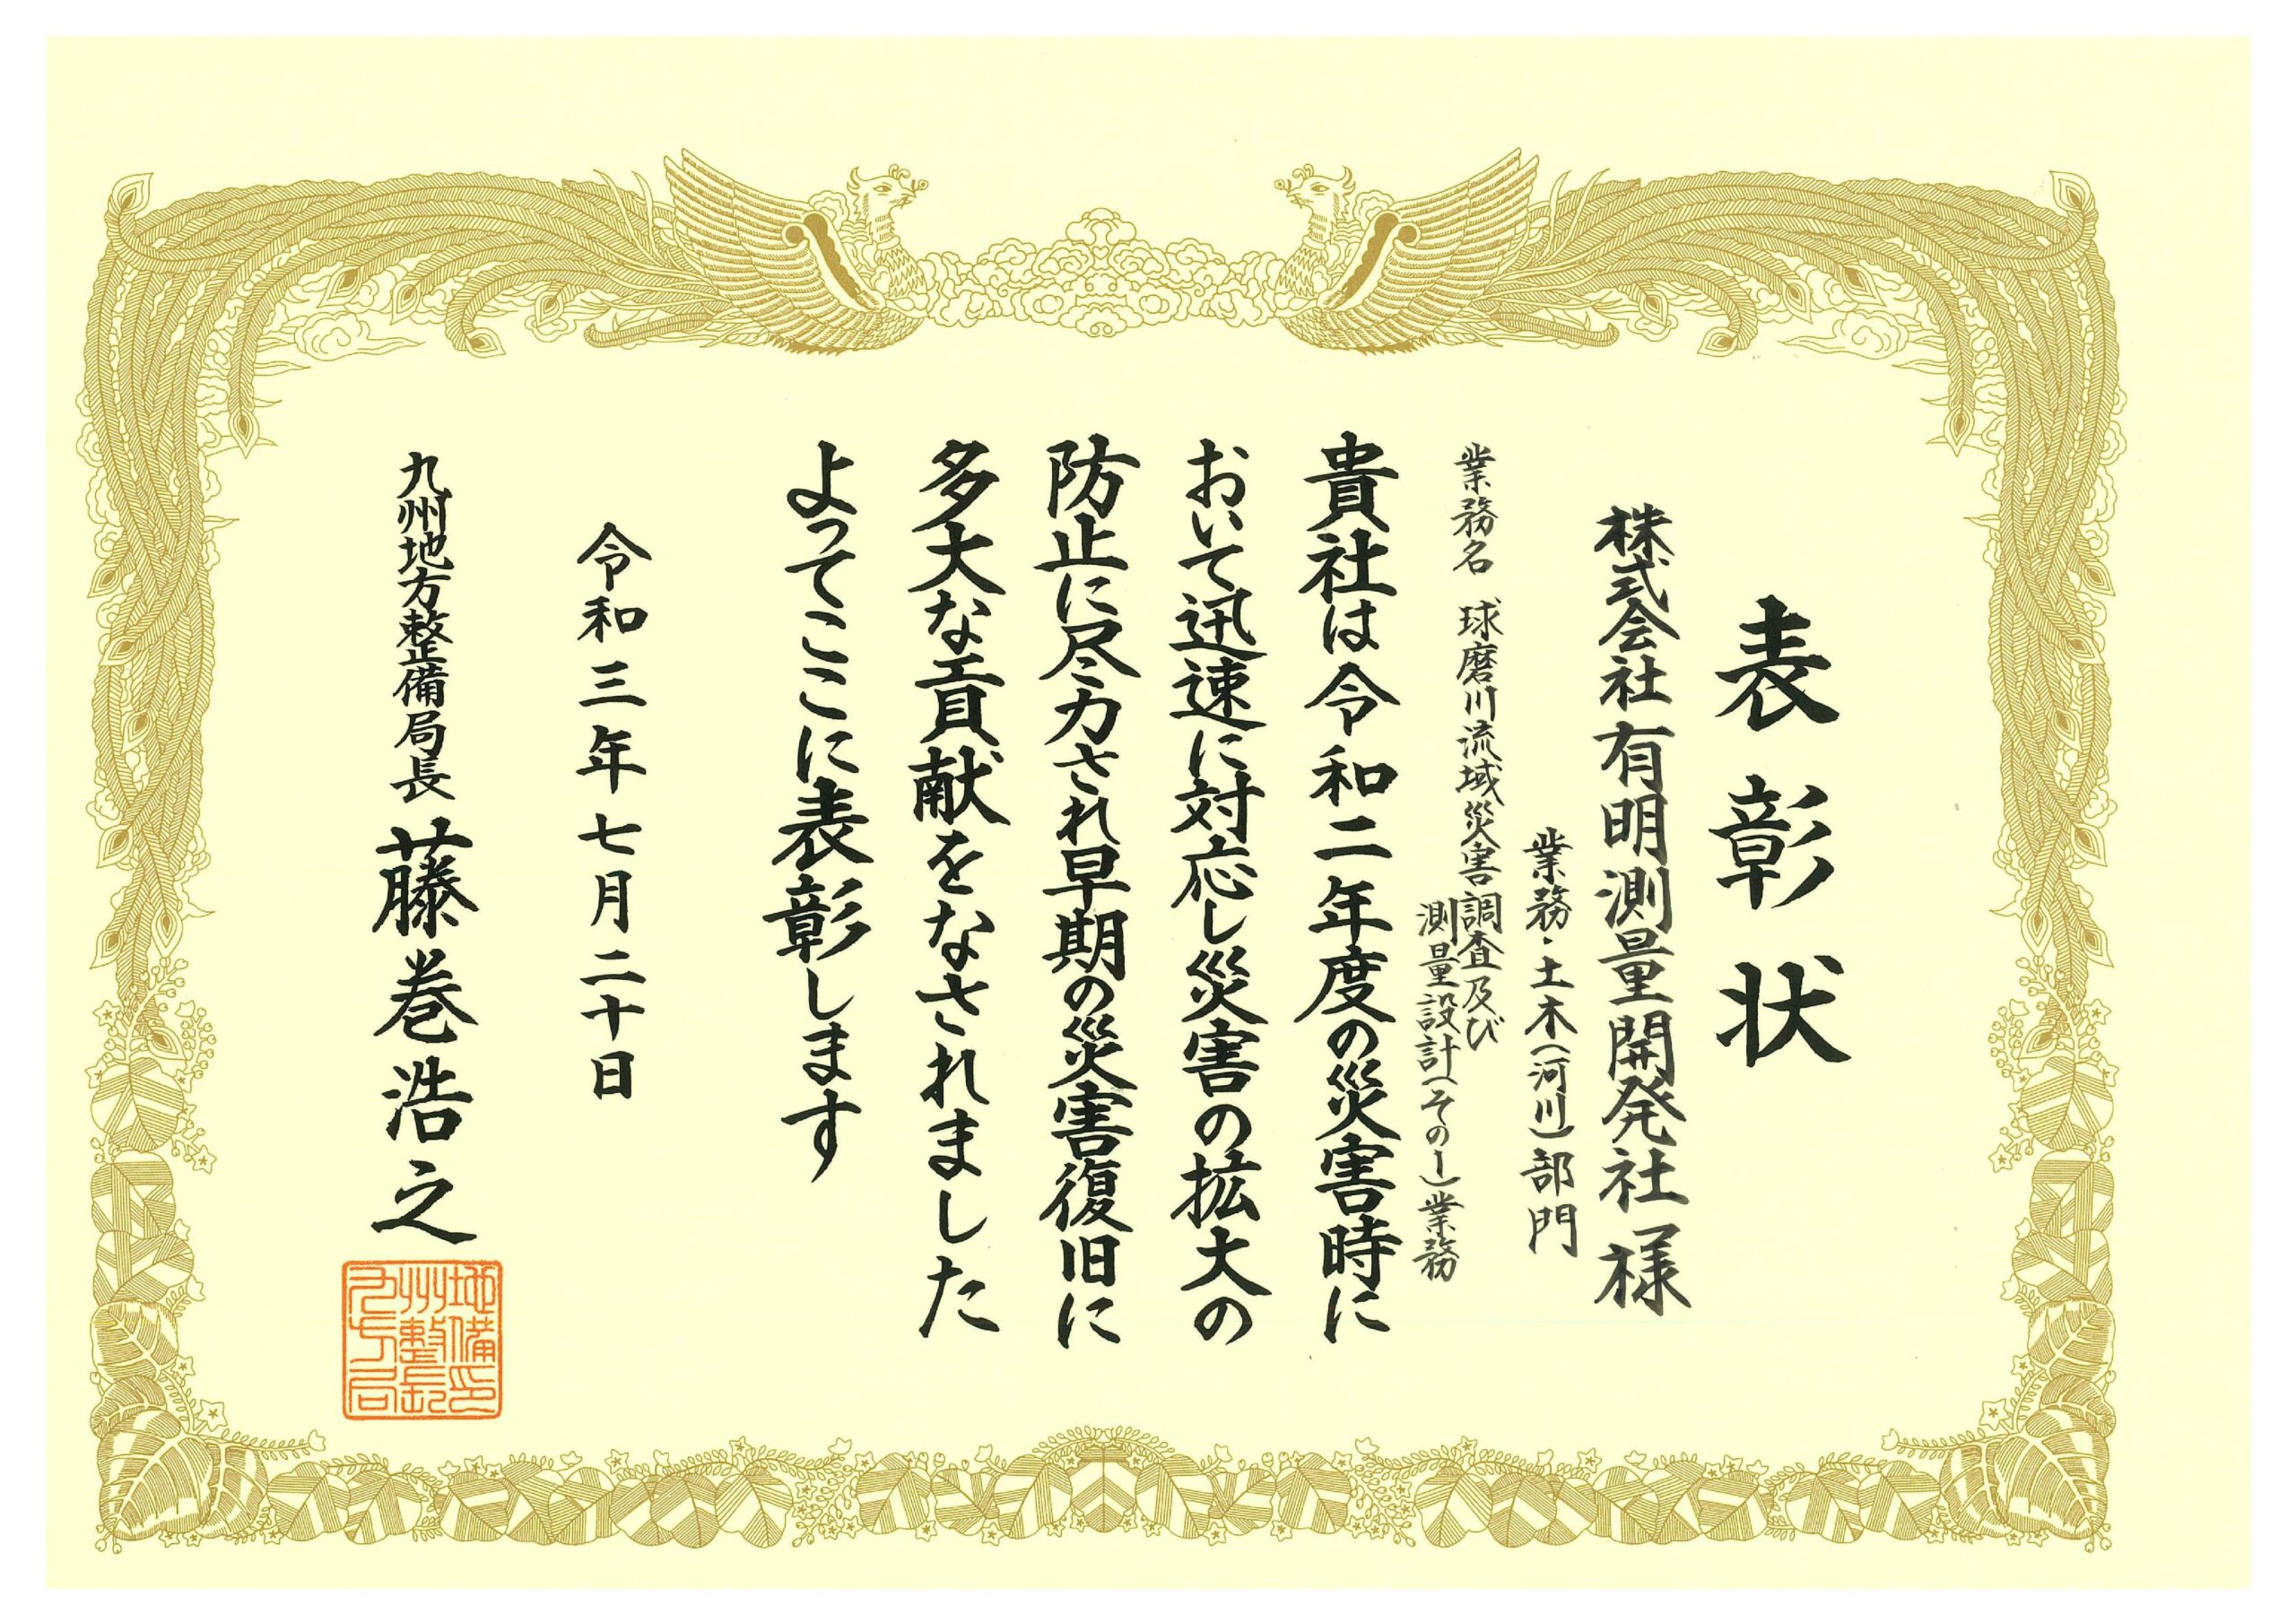 表彰状
株式会社有明測量開発社様
業務・土木(河川)部門
業務名 球磨川流域災害調査及び
測量設計(その1)業務
貴社は令和二年度の災害時に
おいて迅速に対応し災害の拡大の
防止に尽力され早期の災害復旧に
多大な貢献をなされました
よってここに表彰します
令和三年七月二十日
九州地方整備局長 藤巻浩之
地備印
州整長
九方局